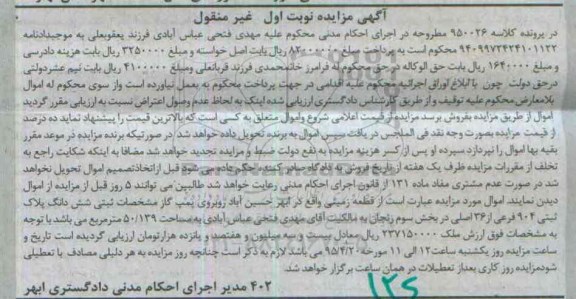 آگهی مزایده نوبت اول غیر منقول
در پرونده کلاسه ۹۵۰۰۲۶ مطروحه در اجرای احکام مدنی محکوم علیه مهدی فتحی عباس آبادی فرزند یعقوبعلی به موجب دادنامه
۹۴۰۹۹۷۲۴۲۴۱۰۱۱۲۲ محکوم است به پرداخت مبلغ ریال بابت اصل خواسته و مبلغ ۳۲۵۰۰۰۰ ریال بابت هزینه دادرسی
و مبلغ ۱۶۴۰۰۰۰ ریال بابت حق الوکاله در حق محکوم له فرامرز خانمحمدی فرزند قربانعلی ومبلغ ۴۱۰۰۰۰۰ ریال بابت نیم عشردولتی
درحق دولت. چون با ابلاغ اوراق اجرائیه محکوم علیه اقدامی در جهت پرداخت محکوم به بعمل نیاورده است واز سوی محکوم له اموال
بلامعارض محکوم علیه توقیف و از طریق کارشناس دادگستری ارزیابی شده اینک به لحاظ عدم وصول اعتراض نسبت به ارزیابی مقرر گردید
اموال از طریق مزایده بفروش برسد مزایده از قیمت اعلامی شروع واموال متعلق به کسی است که بالاترین قیمت را پیشنهاد نماید ده درصد
از قیمت مزایده بصورت وجه نقد فی المجلس دریافت سپس اموال به برنده تحویل داده خواهد شد در صورتیکه برنده مزایده در موعد مقرر
بقیه بها اموال را نپردازد سپرده او پس از کسر هزینه مزایده به نفع دولت ضبط و مزایده تجدید خواهد شد مضافا به اینکه شکایت راجع به
تخلف از مقررات مزایده ظرف یک هفته از تاریخ فروش به دادگاه صادر کننده حکم داده می شود قبل ازاتخاذتصمیم اموال تحویل نخواهد
شد در صورت عدم مشتری مفاد ماده ۱۳۱ از قانون اجرای احکام مدنی رعایت خواهد شد طالبین می توانند ۵ روز قبل از مزایده از اموال
دیدن نمایند. اموال مورد مزایده عبارت است از قطعه زمینی واقع در ابهر حسین آباد روبروی پمپ گاز مشخصات ثبتی شش دانگ پلاک
ثبتی ۹۰۴ فرعی از ۳۶ اصلی در بخش سوم زنجان به مالکیت آقای مهدی فتحی عباس آبادی به مساحت ۵۰/۱۳۹ مترمربع می باشد با توجه
به مشخصات فوق ارزش ملک ۲۳۷۱۵۰۰۰۰ ریال معادل بیست و سه میلیون و هفتصد و پانزده هزارتومان ارزیابی گردیده است تاریخ و
ساعت مزایده روز یکشنبه ساعت۱۲ الی ۱۱ مورخه ۹۵/۴/۲۰ می باشد لازم به ذکر است چنانچه روز مزایده به هر دلیلی مصادف با تعطیلی
شود مزایده روز کاری بعداز تعطیلات در همان ساعت برگزار خواهد شد.
۴۰۲ مدیر اجرای احکام مدنی دادگستری ابهر